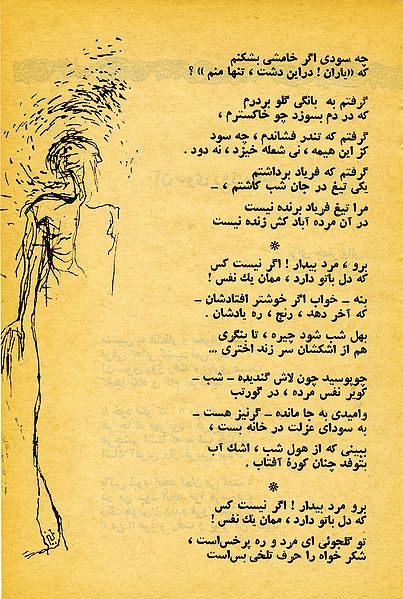 چه سودی اگر خامشی بشکنم
که «یاران ! دراین دشت ، تنها منم » ؟
گرفتم به بانگی گلو بردرم
که در دم بسوزد چو خاکسترم ،
گرفتم که تندر فشاندم ، چه سود
کز این هیمه ، نی شعله خیزد ، نه دود .
گرفتم که فریاد برداشتم
یکی تیغ در جان شب کاشتم ، ـ
مرا تیغ فریاد برنده نیست
در آن مرده آباد کش زنده نیست
*
برو ، مرد بیدار ! اگر نیست کس
که دل باتو دارد ، ممان یك نفس !
بنه ـ خواب اگر خوشتر افتادشان ـ
که آخر دهد ، رنج ، ره یادشان .
بهل شب شود چیره ، تا بنگری
هم از اشکشان سر زند اختری ...
چوپوسید چون لاش گندیده ـ شب ـ
کویر نفس مرده ، در گورتب
وامیدی به جا مانده ـ گرنیز هست ـ
به سودای عزلت در خانه بست ،
ببینی که از هول شب ، اشك آب
بتوفد چنان کورهٔ آفتاب .
*
برو مرد بیدار ! اگر نیست کس
که دل باتو دارد ، ممان یك نفس !
تو گلجوئی ای مرد و ره پرخس‌است ،
شکر خواه را حرف تلخی بس‌است